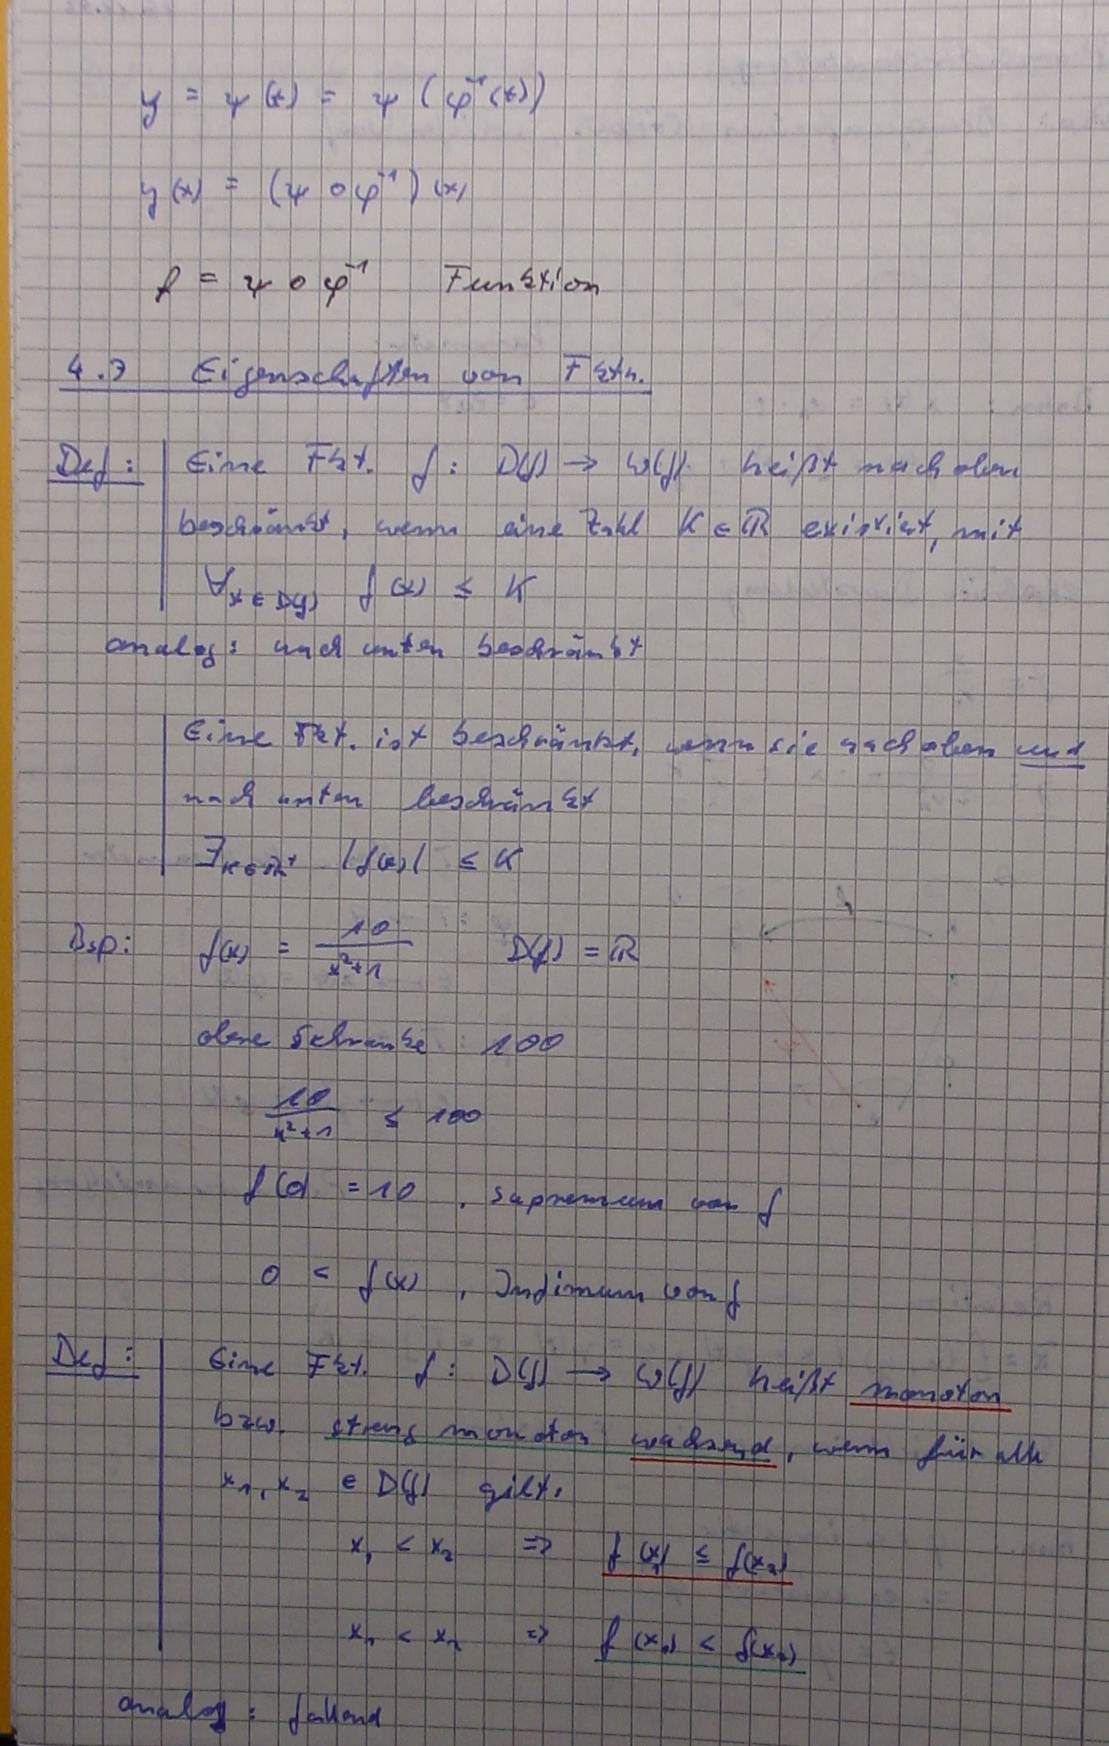 y = ψ(t) = ψ(φ⁻¹(x))
y(x) = (ψ ∘ φ⁻¹)(x)
f = ψ ∘ φ⁻¹ Funktion
4.3 Eigenschaften von Fktn.
Def: Eine Fkt. f: D(f) → W(f) heißt nach oben
beschränkt, wenn eine Zahl K ∈ ℝ existiert, mit
∀x∈D(f) f(x) ≤ K
analog: nach unten beschränkt
Eine Fkt. ist beschränkt, wenn sie nach oben und
nach unten beschränkt
∃K∈ℝ⁺ |f(x)| ≤ K
Bsp: f(x) = 10/(x²+1) D(f) = ℝ
obere Schranke: 100
10/(x²+1) ≤ 100
f(0) = 10, Supremum von f
0 < f(x), Infimum von f
Def: Eine Fkt. f: D(f) → W(f) heißt monoton
bzw. streng monoton wachsend, wenn für alle
x₁, x₂ ∈ D(f) gilt:
x₁ < x₂ ⇒ f(x₁) ≤ f(x₂)
x₁ < x₂ ⇒ f(x₁) < f(x₂)
analog: fallend